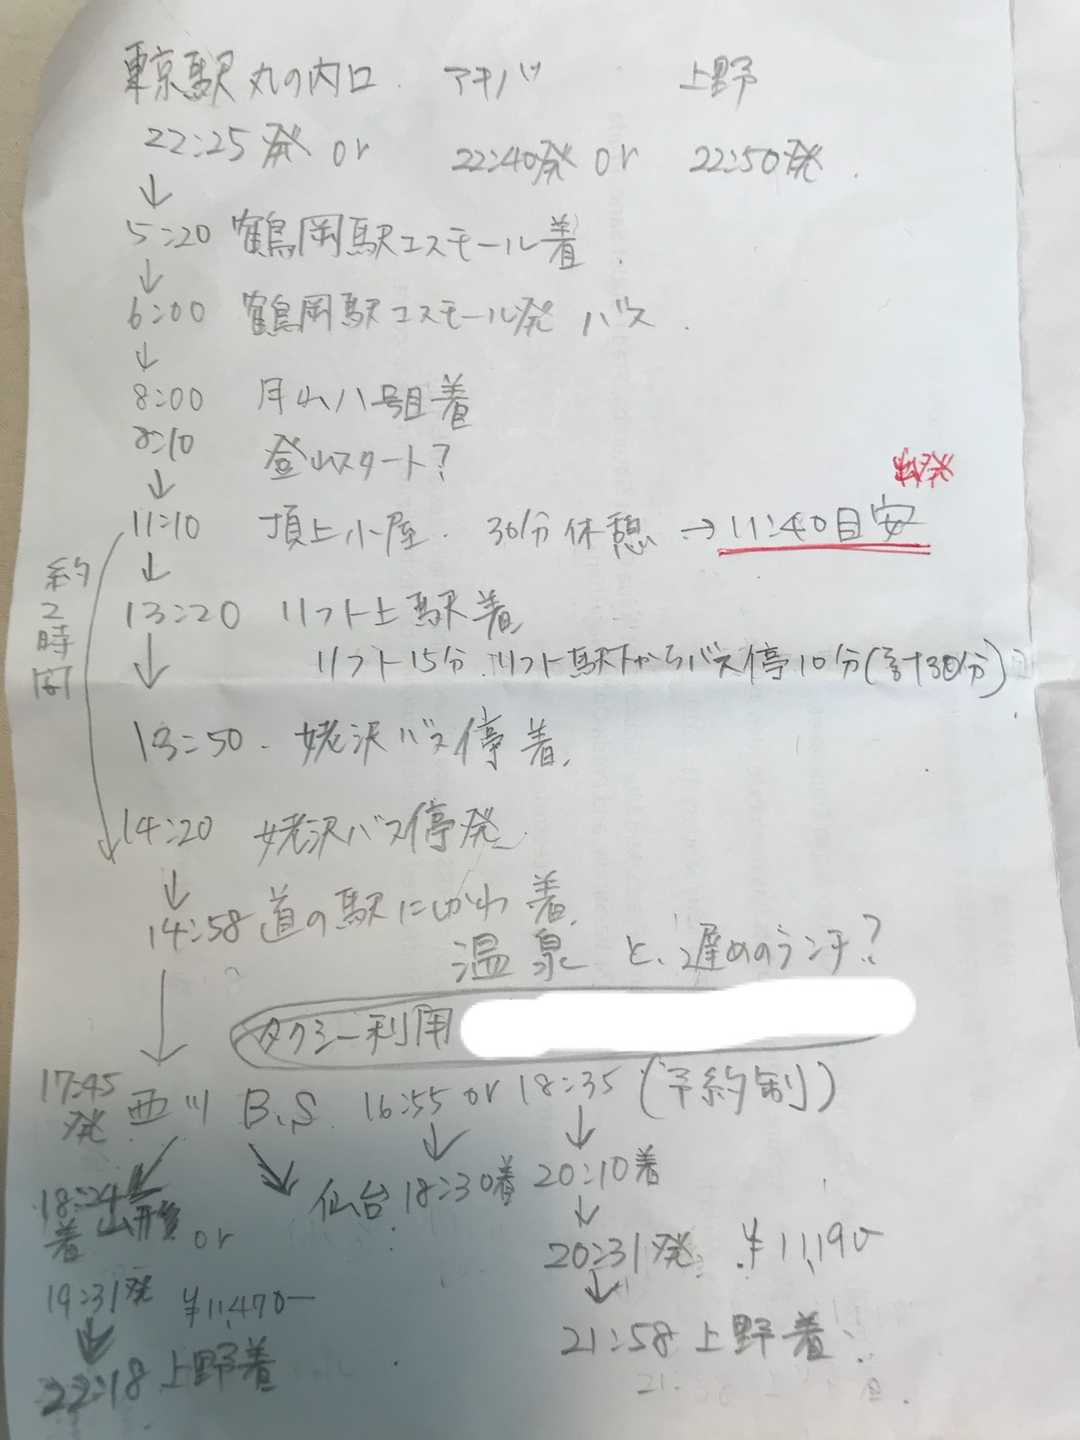 東京駅 丸の内口 アキバ 上野
22:25発 or 22:40発 or 22:50発
↓
5:20 鶴岡駅エスモール着
↓
6:00 鶴岡駅エスモール発 バス
↓
8:00 月山八号目着
8:10 登山スタート?
↓
出発
11:10 頂上小屋. 30分休憩 → 11:40目安
↓
約2時間
13:20 リフト上駅着
↓ リフト15分. リフト駅下からバス停10分(計30分)
13:50. 姥沢バス停着.
14:20 姥沢バス停発
↓
14:58 道の駅にしかわ着.
温泉 と、遅めのランチ?
タクシー利用
17:45発 西川 B.S 16:55 or 18:35 (予約制)
18:24着 山形 or 仙台 18:30着 20:10着
↓
20:31発 ¥11,190
19:31発 ¥11,470-
↓
21:58 上野着.
22:18 上野着